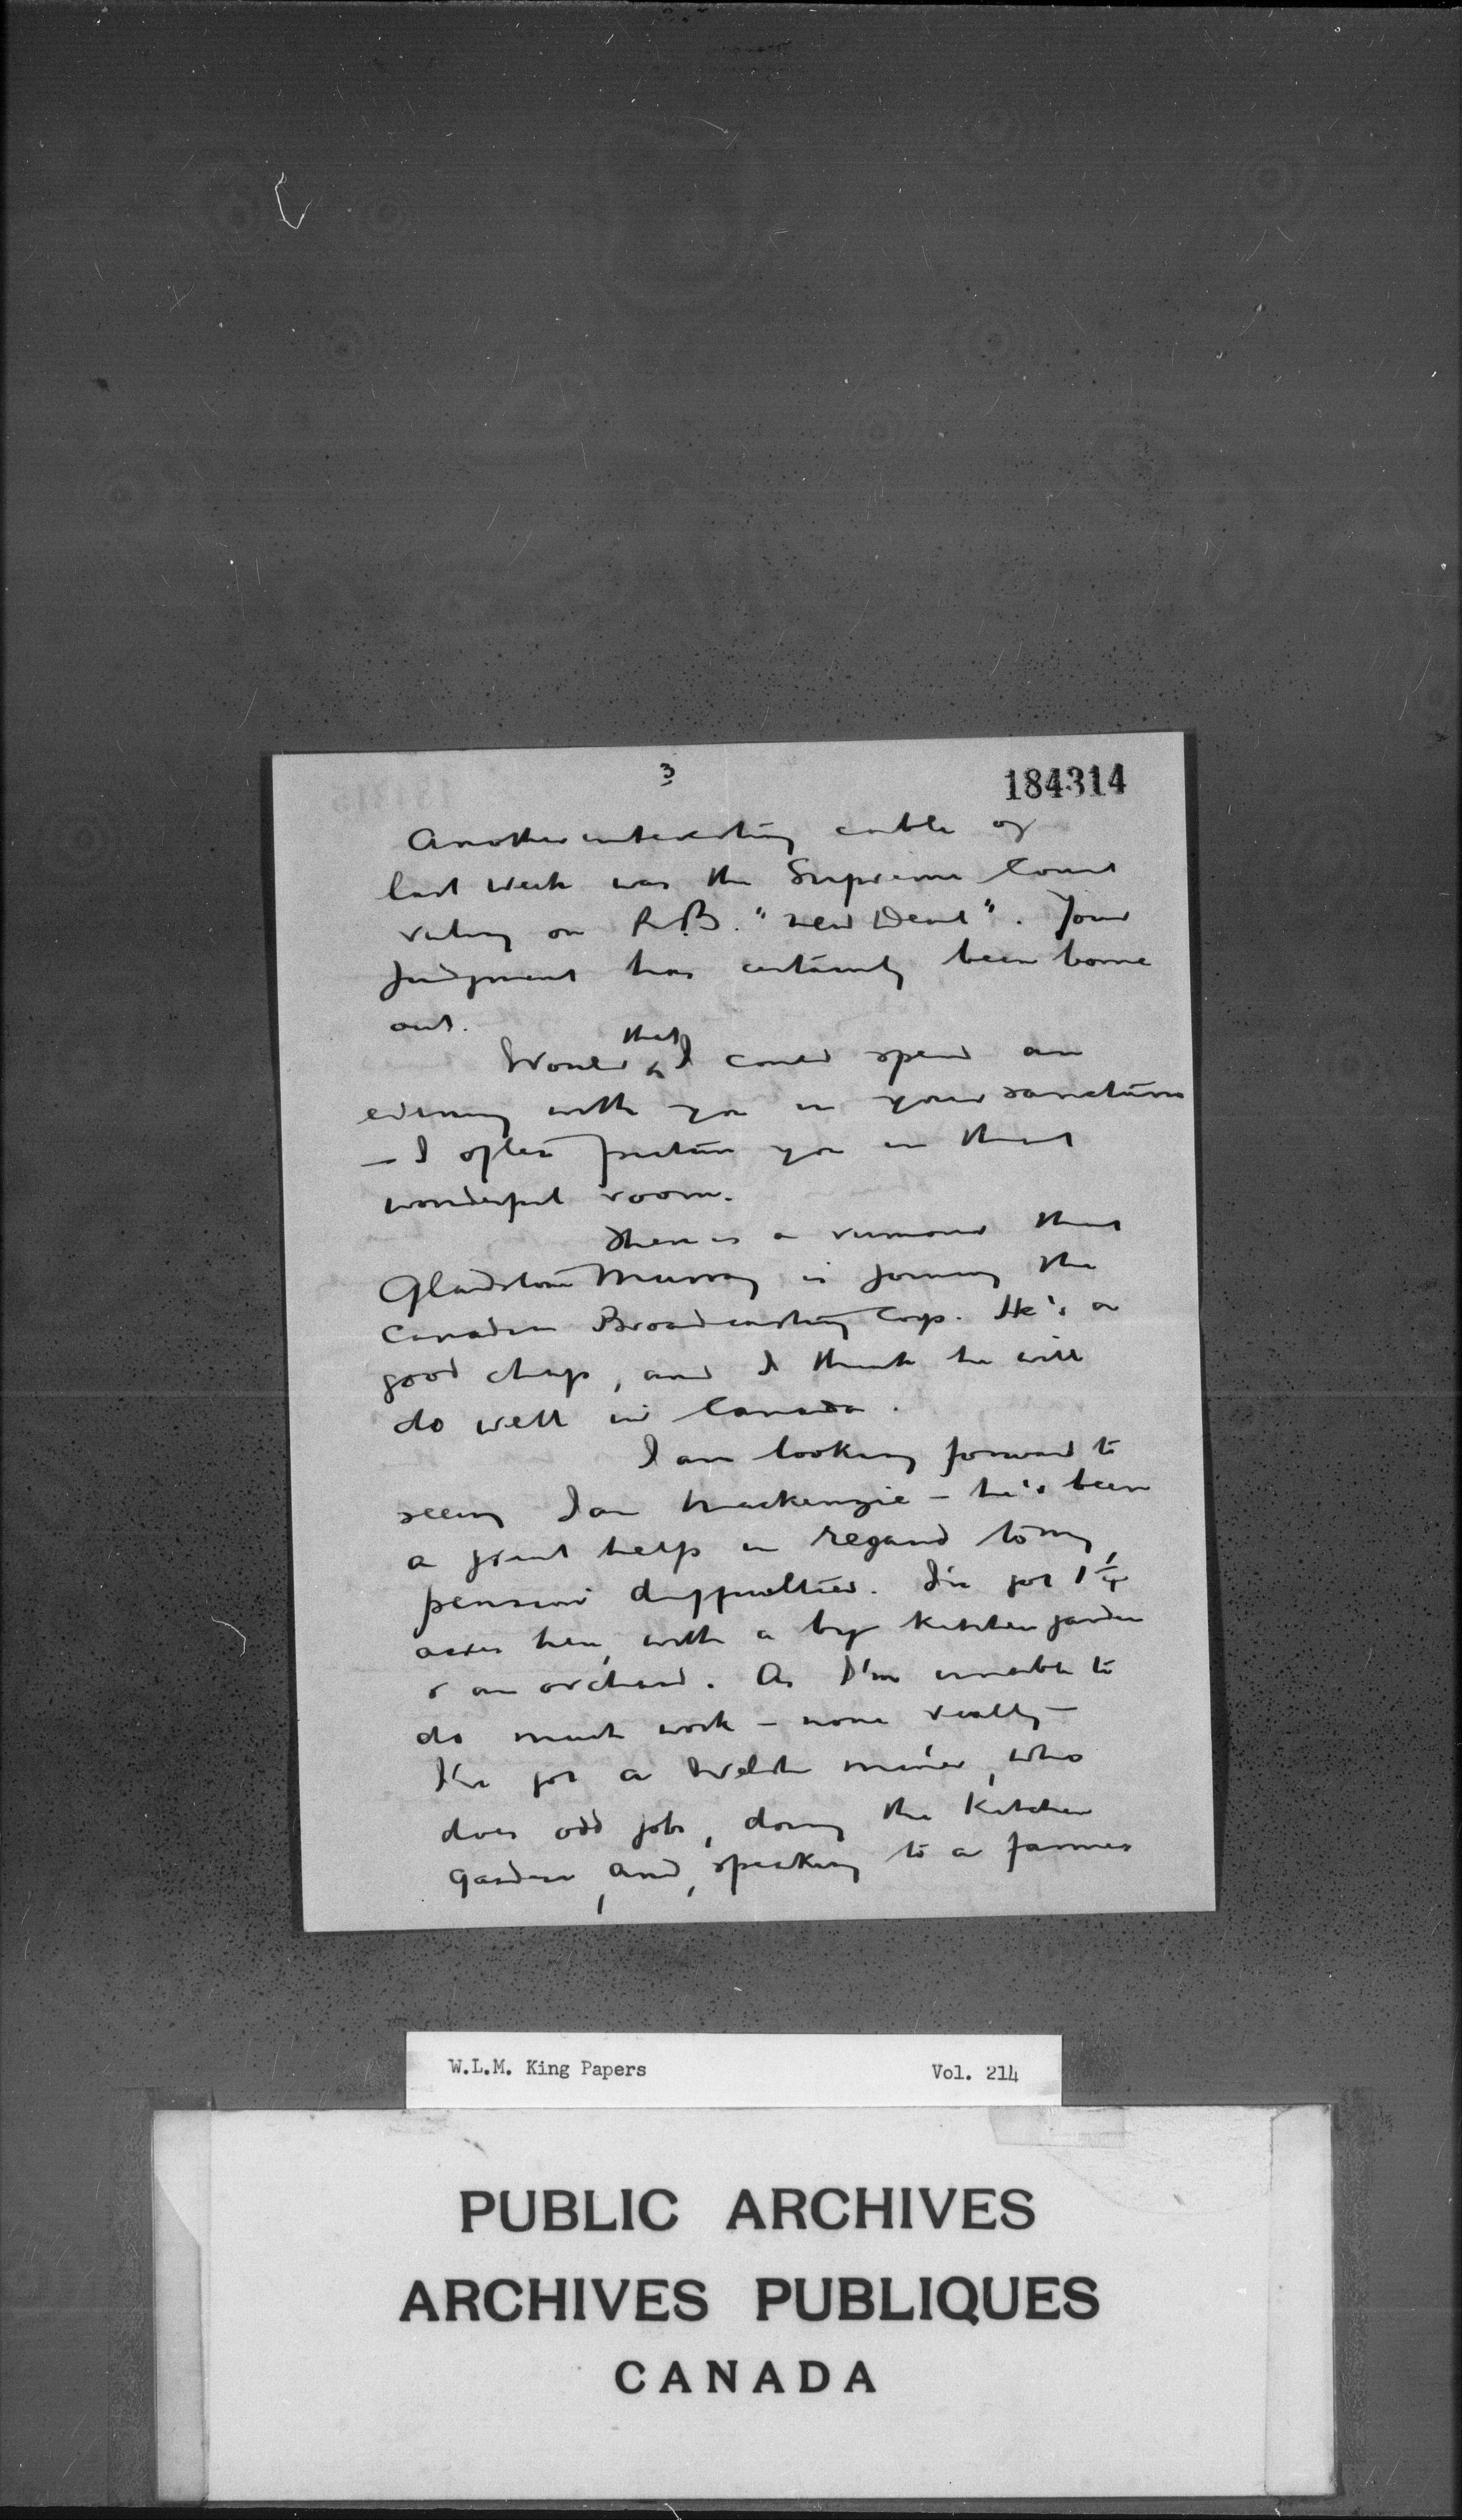 3
184314
Another interesting cable of
last week was the Supreme Court
ruling on R.B. "New Deal". Your
judgment has certainly been borne
out.
Would that I could spend an
evening with you in your sanctum
— I often picture you in that
wonderful room.
There is a rumour that
Gladstone Murray is joining the
Canadian Broadcasting Corp. He's a
good chap, and I think he will
do well in Canada.
I am looking forward to
seeing Ian Mackenzie – he's been
a great help in regard to my
pension difficulties. I've got 1 1/4
acres here, with a big kitchen garden
& an orchard. As I'm unable to
do much work – none really –
I've got a Welsh miner, who
does odd jobs, doing the kitchen
garden, and, speaking to a farmer
W.L.M. King Papers Vol. 214
PUBLIC ARCHIVES
ARCHIVES PUBLIQUES
CANADA